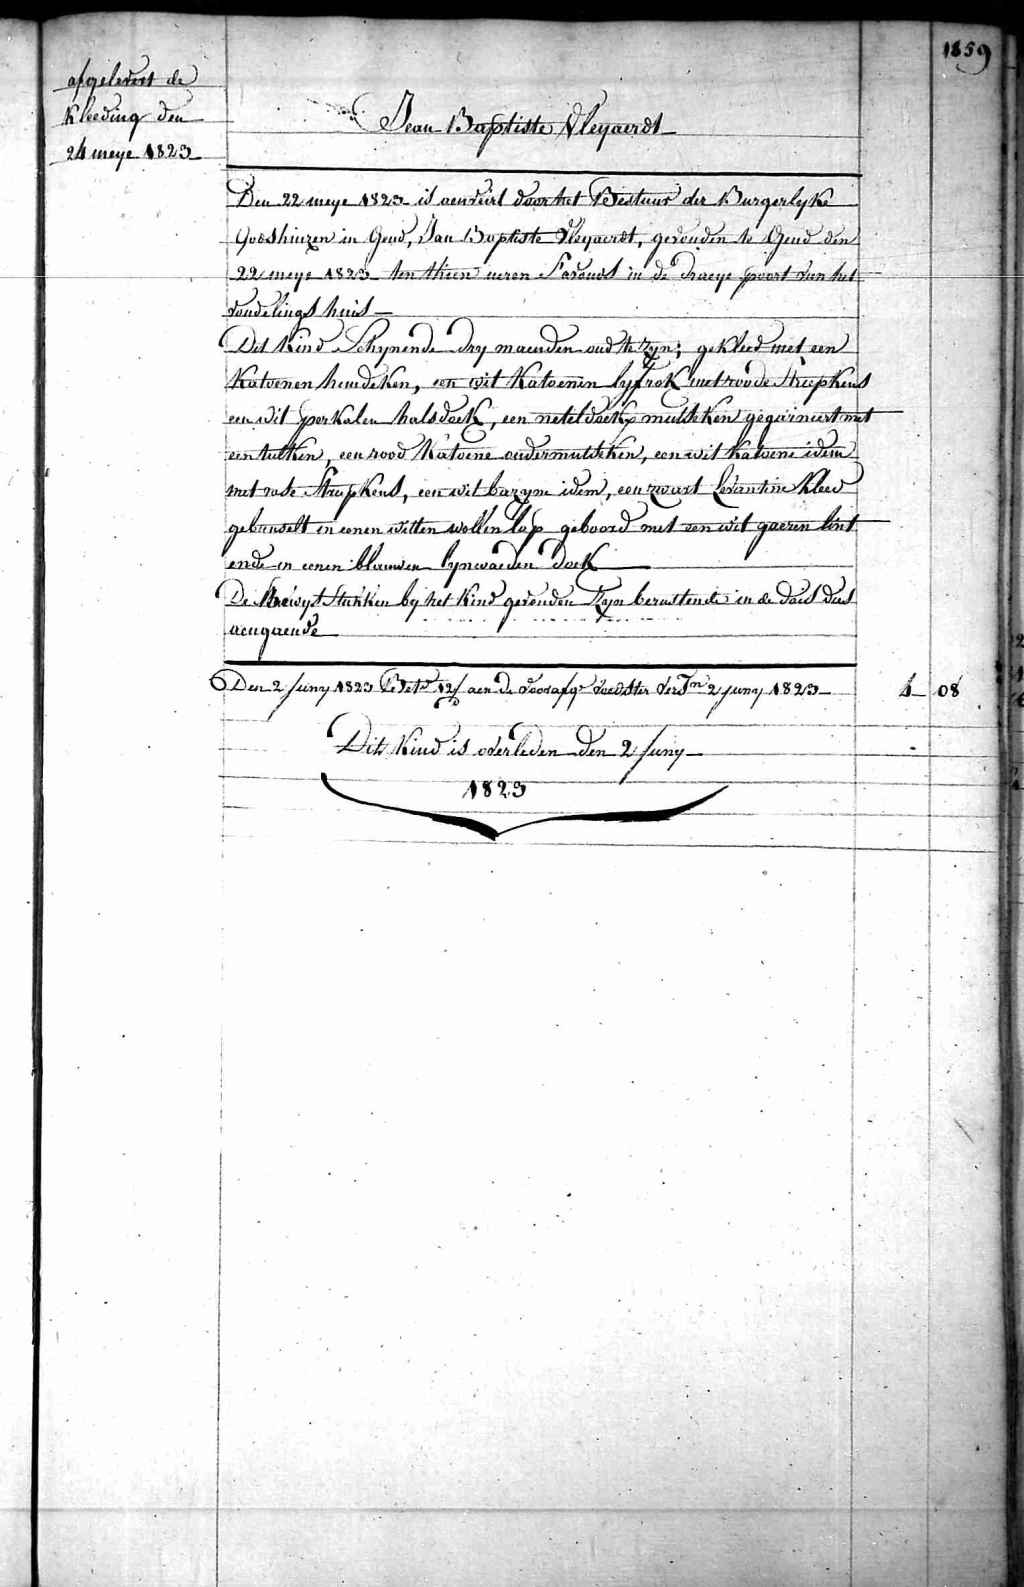 1859
afgelevert de
kleeding den
24 meye 1823
Jean Baptiste Vleyaerdt
Den 22 meye 1823 is aenveirt door het Bestuur der Burgerlyke
Godshuizen in Gend, Jan Baptiste Vleyaerdt, gevonden te Gend den
22 meye 1823 ten thien uren s'avonds in de Draeye poort van het
vondelings huis
Dit Kind schynende dry maenden oud te zyn; gekleed met een
Katoenen hemdeken, een wit Katoenen lyfrok met roode streepkens
een wit perkalen halsdoek, een neteldoekx mutsken gegarneert met
een tulken, een rood Katoene ondermutsken, een wit Katoene idem
met rode streepkens, een wit bazyne idem, een zwart Levantine Kleed
gebunselt in eenen witten wollen lap geboord met een wit gaeren lint
ende in eenen blauwen lynwaeden doek
De bewysstukken by het Kind gevonden zyn berustende in de
aengaende
Den 2 Juny 1823 Bet.d 12/ aen de voedster 2 Juny 1823 4 08
Dit Kind is overleden den 2 Juny
1823